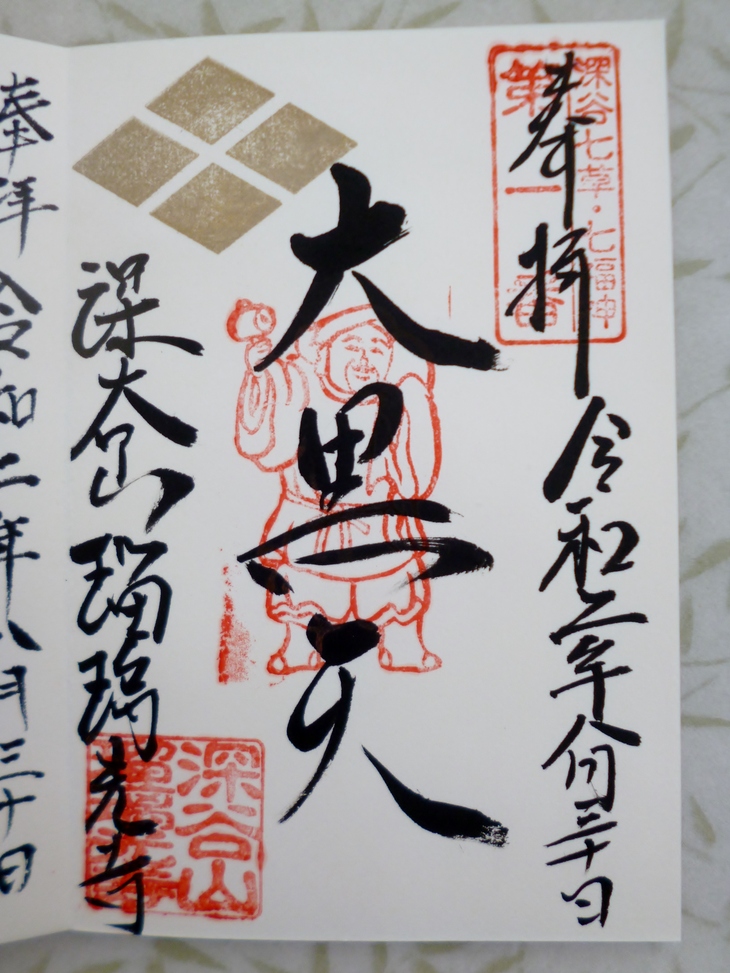 奉拝
令和二年八月三十日
深谷七草・七福神
第一番
大黒天
深谷山瑠璃光寺
深谷山
奉拝 令和二年八月三十日